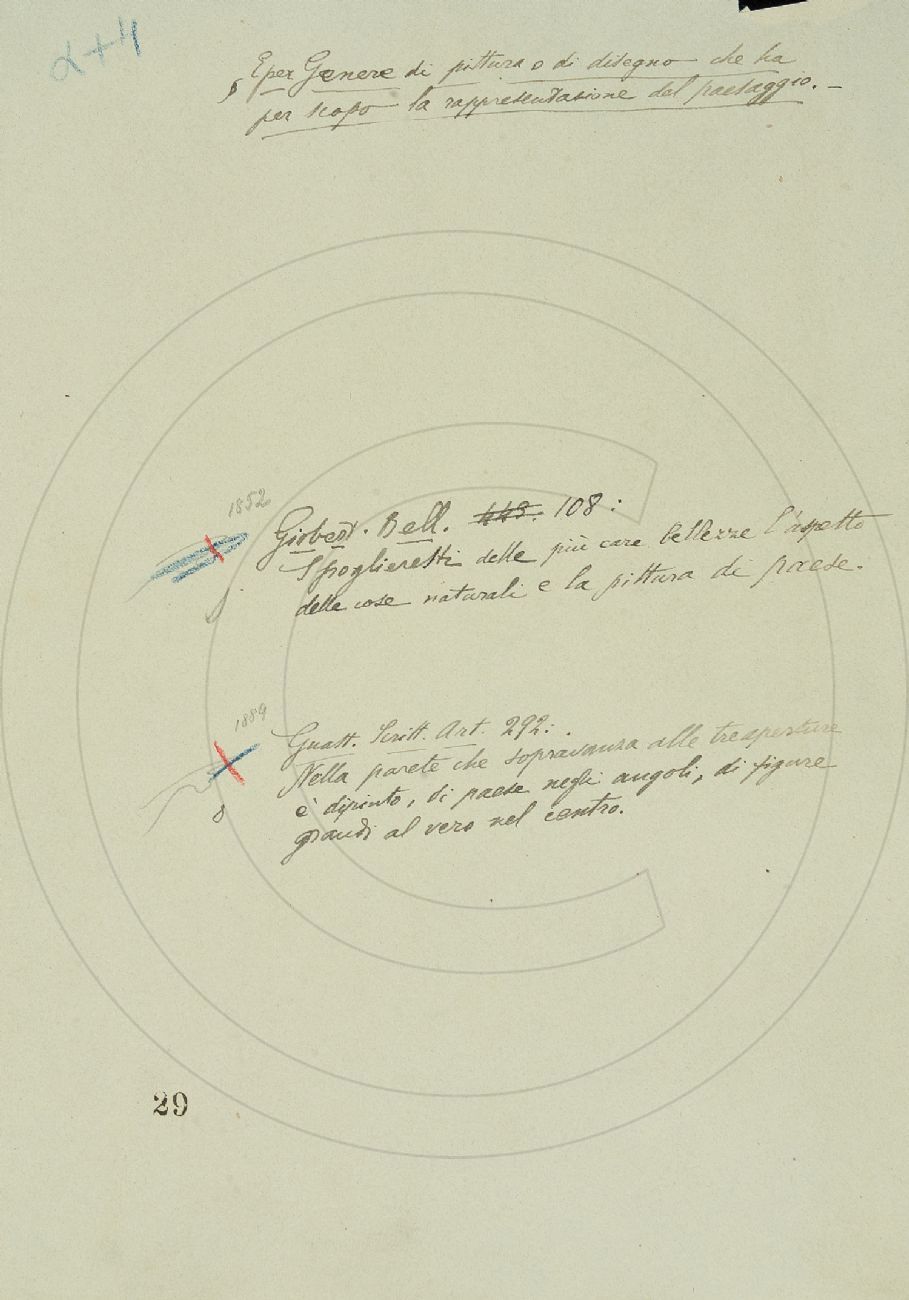 α + 4
§ E per Genere di pittura o di disegno che ha
per scopo la rappresentazione del paesaggio. —
1852
Giobert. Bell. 445. 108:
Spoglieresti delle più care bellezze l'aspetto
delle cose naturali e la pittura di paese.
1889
Guatt. Scritt. Art. 292:
Nella parete che sopravanza alle tre aperture
è dipinto, di paese negli angoli, di figure
grandi al vero nel centro.
29